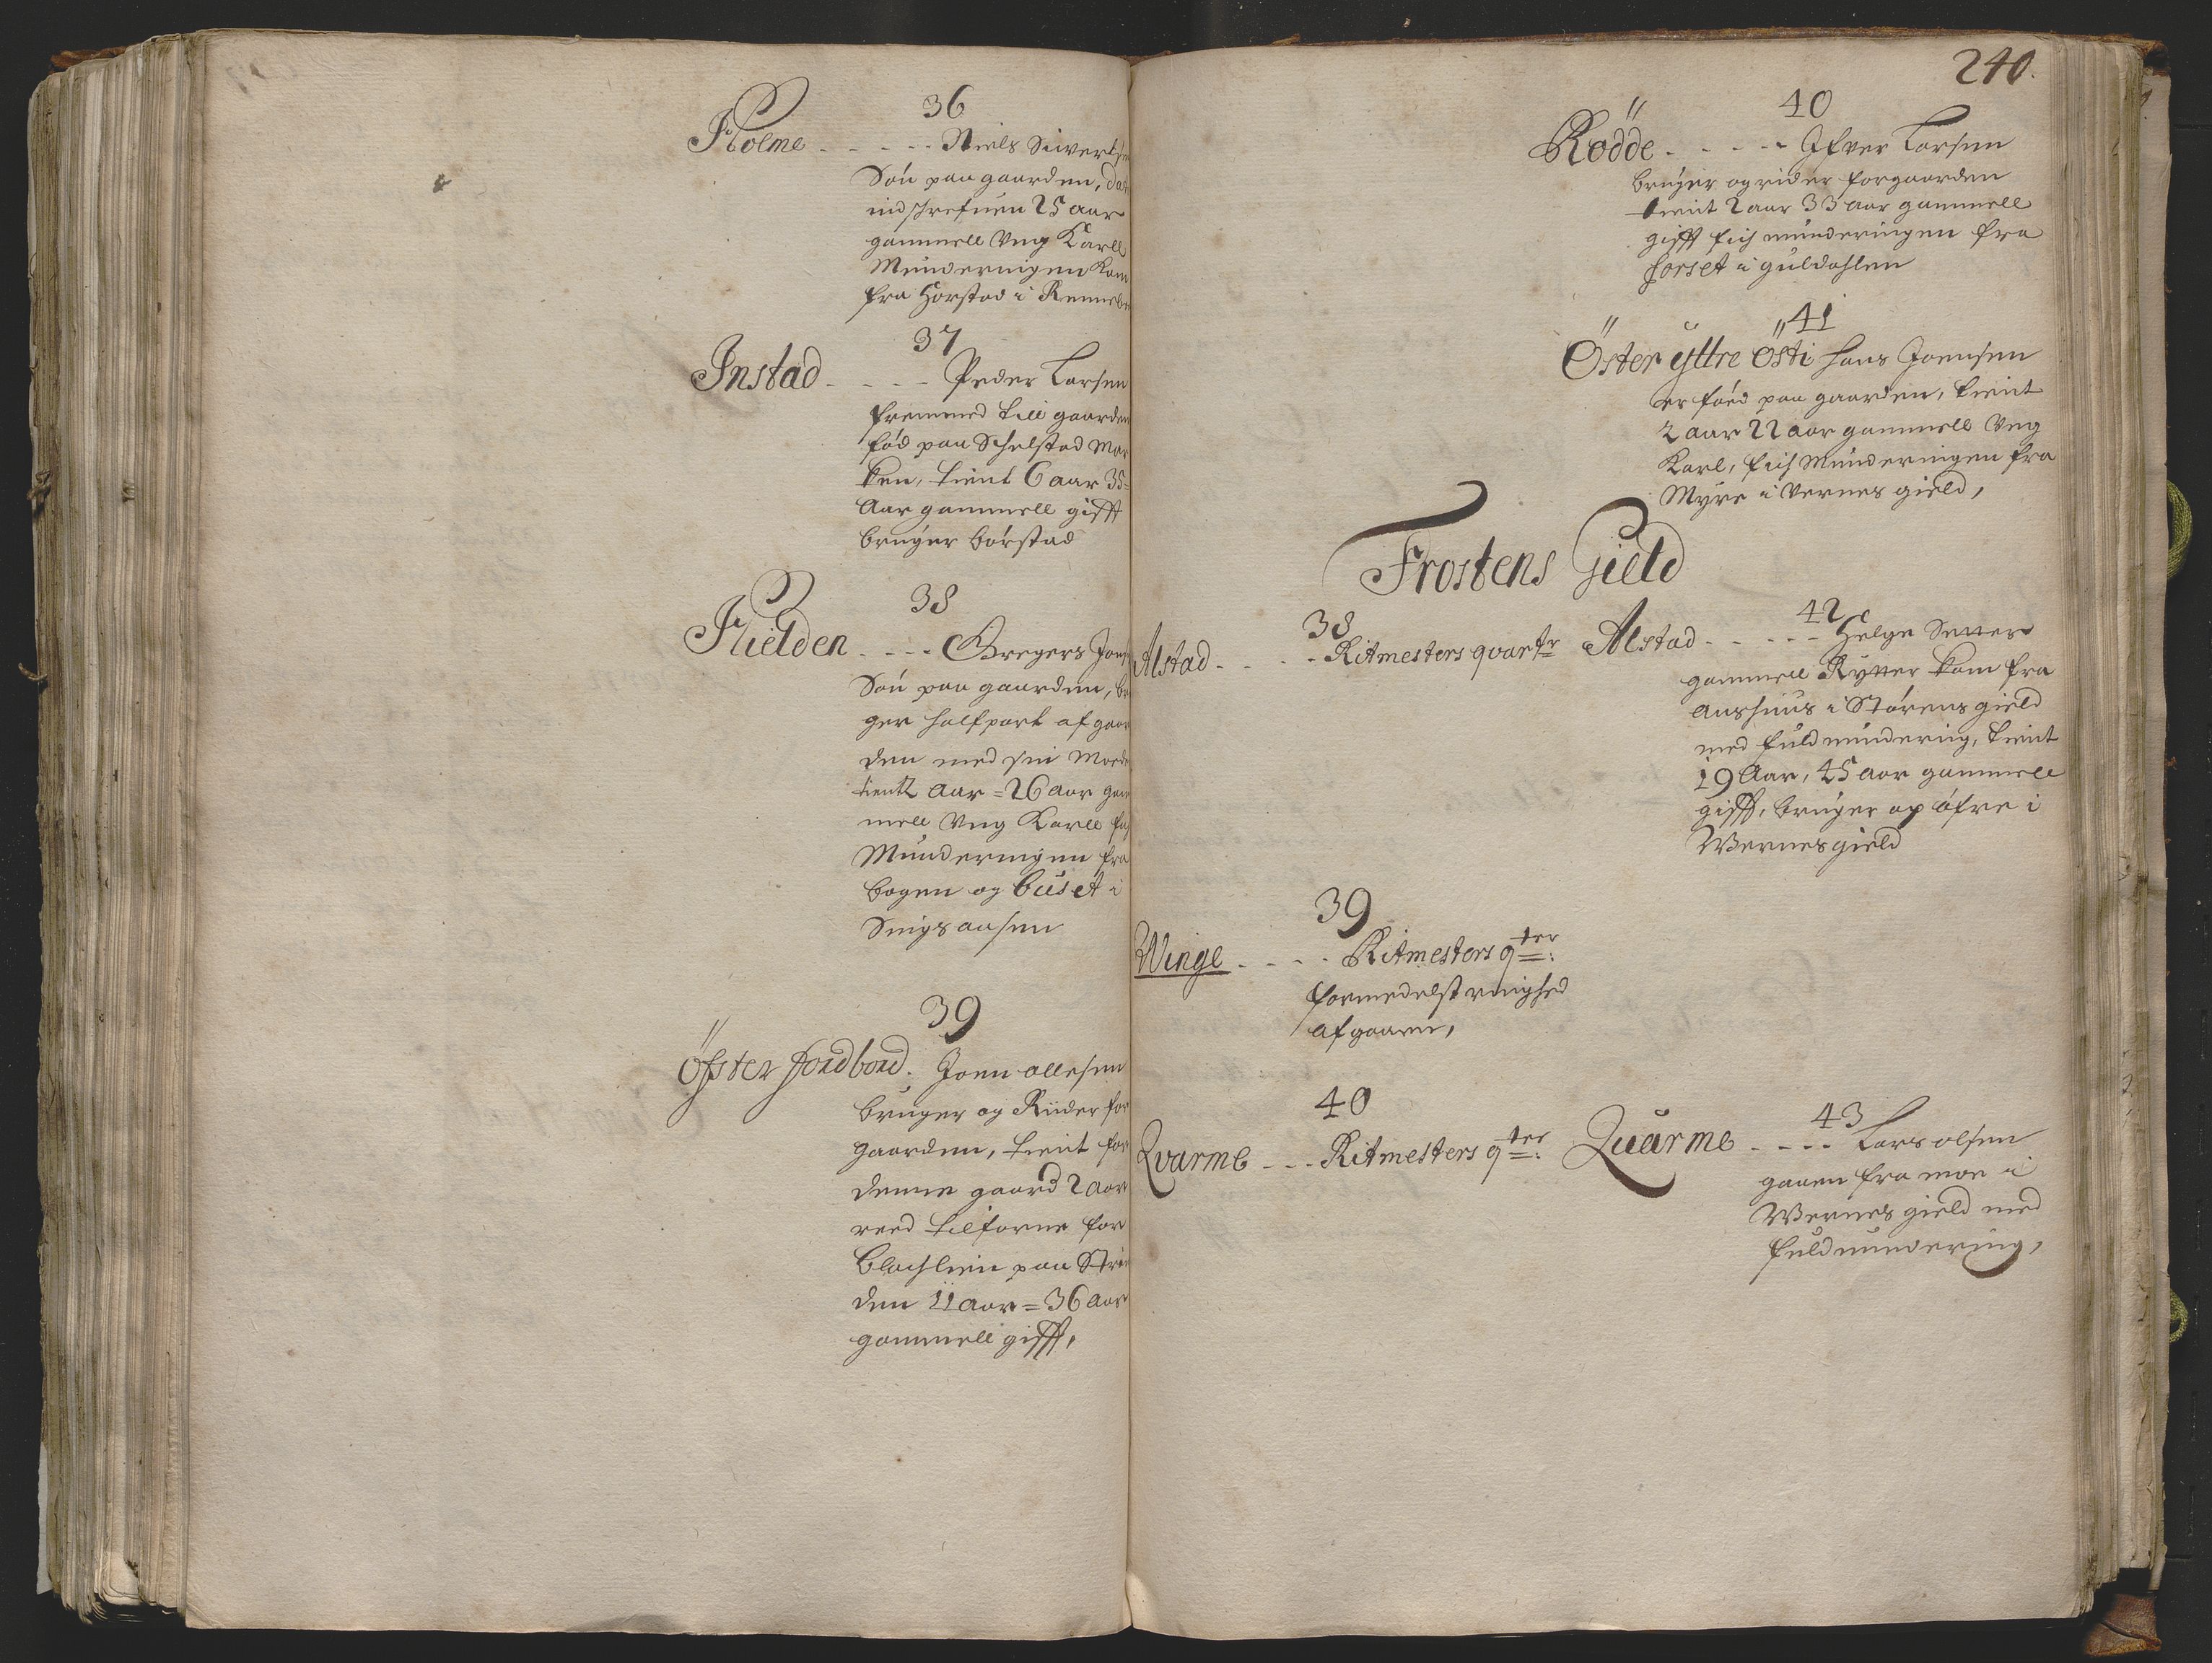 36
Holme - - - - - Niels Siverts
Søn paa gaarden,
indschrefuen 25 aar
gammell Vng Karll
Munderingen Kom
fra Horstad i Renneb
37
Instad - - - - Peder Larsen
fremmed till gaarden
fød paa Schelstad Mar
ken, tient 6 aar 35=
Aar gammell gifft
bruger børstad
38
Hielden - - - - Gregers Jon
Søn paa gaarden, br
ger halfpart af gaar
den med sin Moder
tient 2 Aar = 26 Aar gam
mell Vng Karll
Munderingen fra
bogen og buset i
Singsaasen
39
Öfster Jordbord. Joen ollesen
bruger og Riider for
gaarden, tient for
denne gaard 2 Aar
reed tilforne for
Blachlien paa Strin
den 11 Aar = 36 Aar
gammell gifft,
240.
40
Rödde - - - - - Ifver Larsen
bruger og rider for gaarden
tient 2 aar 33 aar gammell
gifft fich munderingen fra
forset i guldahlen
41
Öster yttre Östi Hans Joensen
er føed paa gaarden, tient
2 aar 22 aar gammell Vng
Karl, fich Munderingen fra
Myre i Vernes gield,
Frostens Gield
38
Alstad - - - - - Ritmesters quartr
42
Alstad - - - - - Helge
gammell Rytter kom fra
Aushuus i Størens gield
med fuld mundering, tient
19 Aar, 45 aar gammell
gifft, bruger og øfre i
Wernes gield
39
Winge - - - - Ritmesters qter:
formedelst ringhed
af gaarn,
40
Qvarme - - - Ritmesters qter:
43
Quarme - - - - Lars olsen
gaaen fra moe i
Wernes gield med
fuld mundering,